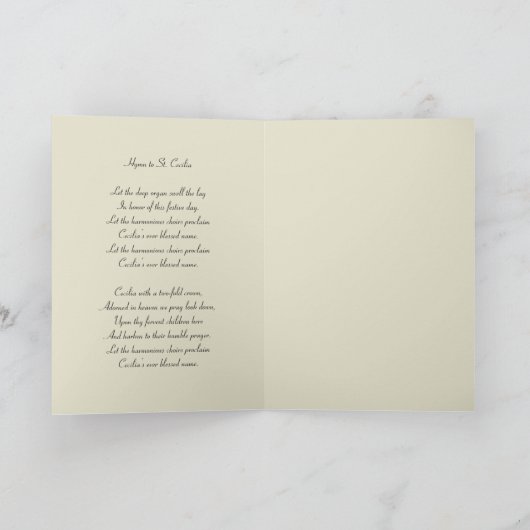 Hymn to St. Cecilia
Let the deep organ swell the lay
In honor of this festive day.
Let the harmonious choirs proclaim
Cecilia's ever blessed name.
Let the harmonious choirs proclaim
Cecilia's ever blessed name.
Cecilia with a two-fold crown,
Adorned in heaven we pray look down,
Upon thy fervent children here
And harken to their humble prayer.
Let the harmonious choirs proclaim
Cecilia's ever blessed name.